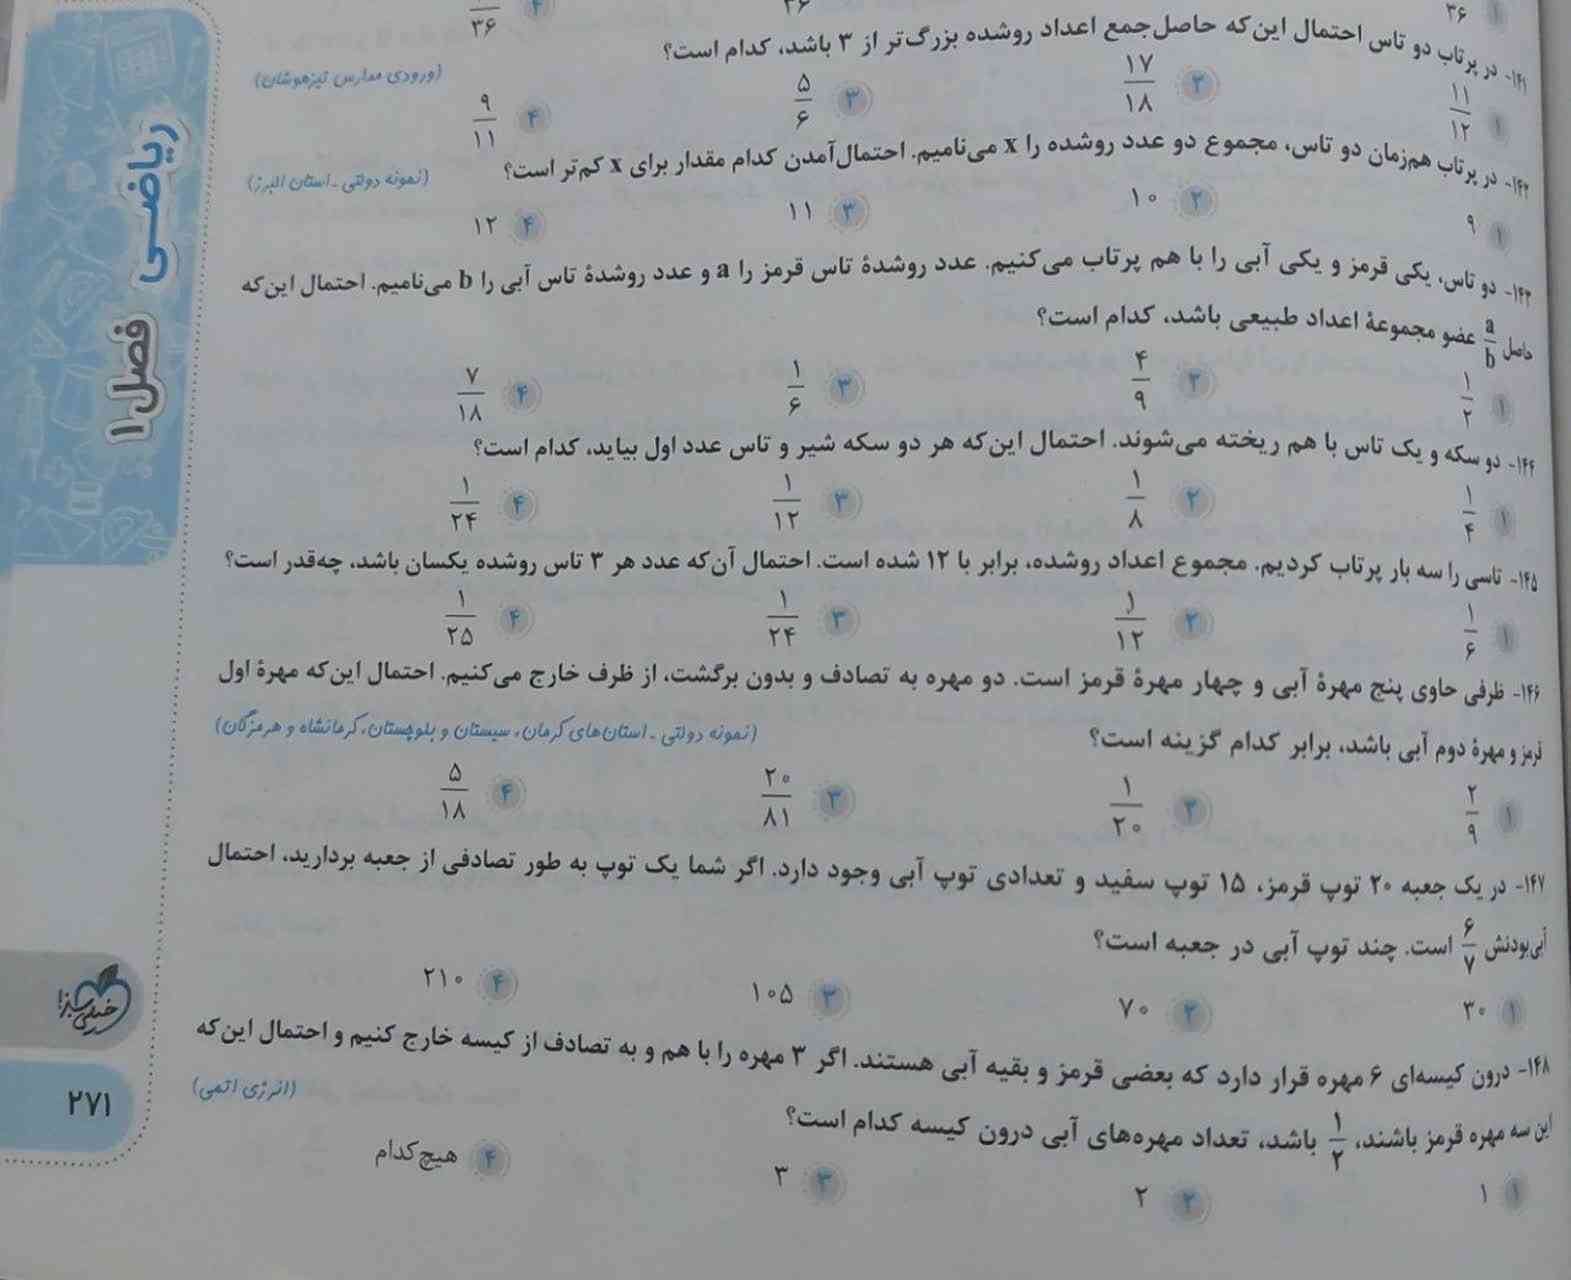 ۱ ۳۶
۳۶
۴ ۳۶
۱۴۱- در پرتاب دو تاس احتمال این‌که حاصل‌جمع اعداد روشده بزرگ‌تر از ۳ باشد، کدام است؟
(ورودی مدارس تیزهوشان)
۱ ۱۱/۱۲ ۲ ۱۷/۱۸ ۳ ۵/۶ ۴ ۹/۱۱
۱۴۲- در پرتاب هم‌زمان دو تاس، مجموع دو عدد روشده را x می‌نامیم. احتمال‌آمدن کدام مقدار برای x کم‌تر است؟
(نمونه دولتی ـ استان البرز)
۱ ۹ ۲ ۱۰ ۳ ۱۱ ۴ ۱۲
۱۴۳- دو تاس، یکی قرمز و یکی آبی را با هم پرتاب می‌کنیم. عدد روشدهٔ تاس قرمز را a و عدد روشدهٔ تاس آبی را b می‌نامیم. احتمال این‌که
حاصل a/b عضو مجموعهٔ اعداد طبیعی باشد، کدام است؟
۱ ۱/۲ ۲ ۴/۹ ۳ ۱/۶ ۴ ۷/۱۸
۱۴۴- دو سکه و یک تاس با هم ریخته می‌شوند. احتمال این‌که هر دو سکه شیر و تاس عدد اول بیاید، کدام است؟
۱ ۱/۴ ۲ ۱/۸ ۳ ۱/۱۲ ۴ ۱/۲۴
۱۴۵- تاسی را سه بار پرتاب کردیم. مجموع اعداد روشده، برابر با ۱۲ شده است. احتمال آن‌که عدد هر ۳ تاس روشده یکسان باشد، چه‌قدر است؟
۱ ۱/۶ ۲ ۱/۱۲ ۳ ۱/۲۴ ۴ ۱/۲۵
۱۴۶- ظرفی حاوی پنج مهرهٔ آبی و چهار مهرهٔ قرمز است. دو مهره به تصادف و بدون برگشت، از ظرف خارج می‌کنیم. احتمال این‌که مهرهٔ اول
قرمز و مهرهٔ دوم آبی باشد، برابر کدام گزینه است؟
(نمونه دولتی ـ استان‌های کرمان، سیستان و بلوچستان، کرمانشاه و هرمزگان)
۱ ۲/۹ ۲ ۱/۲۰ ۳ ۲۰/۸۱ ۴ ۵/۱۸
۱۴۷- در یک جعبه ۲۰ توپ قرمز، ۱۵ توپ سفید و تعدادی توپ آبی وجود دارد. اگر شما یک توپ به طور تصادفی از جعبه بردارید، احتمال
آبی‌بودنش ۶/۷ است. چند توپ آبی در جعبه است؟
۱ ۳۰ ۲ ۷۰ ۳ ۱۰۵ ۴ ۲۱۰
۱۴۸- درون کیسه‌ای ۶ مهره قرار دارد که بعضی قرمز و بقیه آبی هستند. اگر ۳ مهره را با هم و به تصادف از کیسه خارج کنیم و احتمال این‌که
این سه مهره قرمز باشند، ۱/۲ باشد، تعداد مهره‌های آبی درون کیسه کدام است؟
(انرژی اتمی)
۱ ۱ ۲ ۲ ۳ ۳ ۴ هیچ‌کدام
ریاضی
فصل ۱
خیلی سبز!
۲۷۱